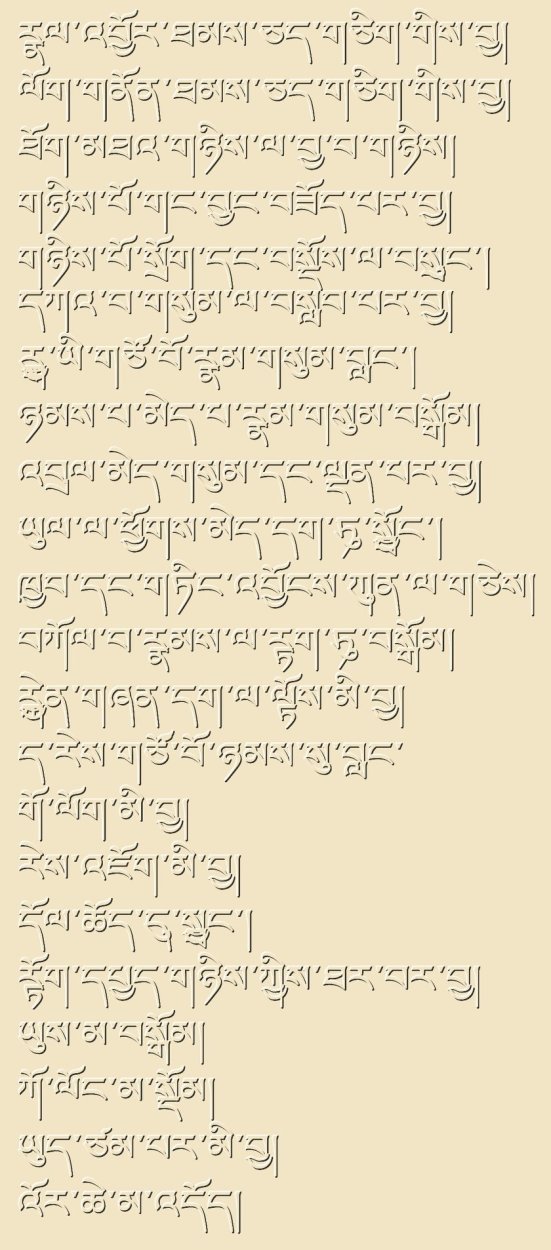 རྣལ་འབྱོར་ཐམས་ཅད་གཅིག་གིས་བྱ།
ལོག་གནོན་ཐམས་ཅད་གཅིག་གིས་བྱ།
ཐོག་མཐའ་གཉིས་ལ་བྱ་བ་གཉིས།
གཉིས་པོ་གང་བྱུང་བཟོད་པར་བྱ།
གཉིས་པོ་སྲོག་དང་བསྡོས་ལ་བསྲུང་།
དཀའ་བ་གསུམ་ལ་བསླབ་པར་བྱ།
རྒྱུ་ཡི་གཙོ་བོ་རྣམ་གསུམ་བླང་།
ཉམས་པ་མེད་པ་རྣམ་གསུམ་བསྒོམ།
འབྲལ་མེད་གསུམ་དང་ལྡན་པར་བྱ།
ཡུལ་ལ་ཕྱོགས་མེད་དག་ཏུ་སྦྱོང་།
ཁྱབ་དང་གཏིང་འབྱོངས་ཀུན་ལ་གཅེས།
བཀོལ་བ་རྣམས་ལ་རྟག་ཏུ་བསྒོམ།
རྐྱེན་གཞན་དག་ལ་ལྟོས་མི་བྱ།
ད་རེས་གཙོ་བོ་ཉམས་སུ་བླང་
གོ་ལོག་མི་བྱ།
རེས་འཇོག་མི་བྱ།
དོལ་ཆོད་དུ་སྦྱང་།
རྟོག་དཔྱད་གཉིས་ཀྱིས་ཐར་བར་བྱ།
ཡུས་མ་བསྒོམ།
ཀོ་ལོང་མ་སྡོམ།
ཡུད་ཙམ་པར་མི་བྱ།
འོར་ཆེ་མ་འདོད།